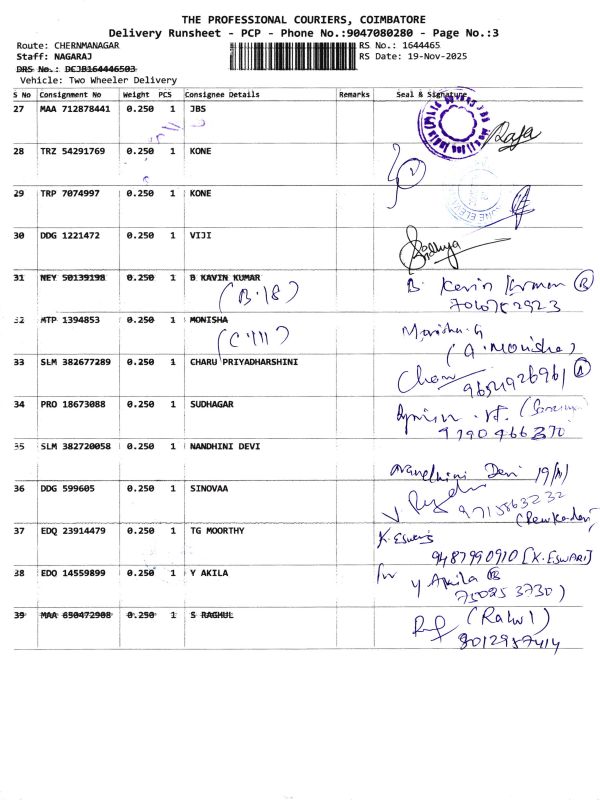 THE PROFESSIONAL COURIERS, COIMBATORE
Delivery Runsheet - PCP - Phone No.:9047080280 - Page No.:3
Route: CHERNMANAGAR RS No.: 1644465
Staff: NAGARAJ RS Date: 19-Nov-2025
DRS No.: DCJB164446503
Vehicle: Two Wheeler Delivery
S No Consignment No Weight PCS Consignee Details Remarks Seal & Signature
27 MAA 712878441 0.250 1 JBS Raja
28 TRZ 54291769 0.250 1 KONE
29 TRP 7074997 0.250 1 KONE
30 DDG 1221472 0.250 1 VIJI
31 NEY 50139198 0.250 1 B KAVIN KUMAR B. Kavin Kumar
(B.18)
32 MTP 1394853 0.250 1 MONISHA Monisha.G
(C.111) (G.Monisha)
33 SLM 382677289 0.250 1 CHARU PRIYADHARSHINI Charu
34 PRO 18673088 0.250 1 SUDHAGAR
9790466370
35 SLM 382720058 0.250 1 NANDHINI DEVI
Nandhini Devi 19/11
36 DDG 599605 0.250 1 SINOVAA
9715863232
37 EDQ 23914479 0.250 1 TG MOORTHY K.Eswari
9487990910 [K.ESWARI]
38 EDO 14559899 0.250 1 Y AKILA Y Akila
39 MAA 650472908 0.250 1 S RAGHUL (Rahul)
8012957414